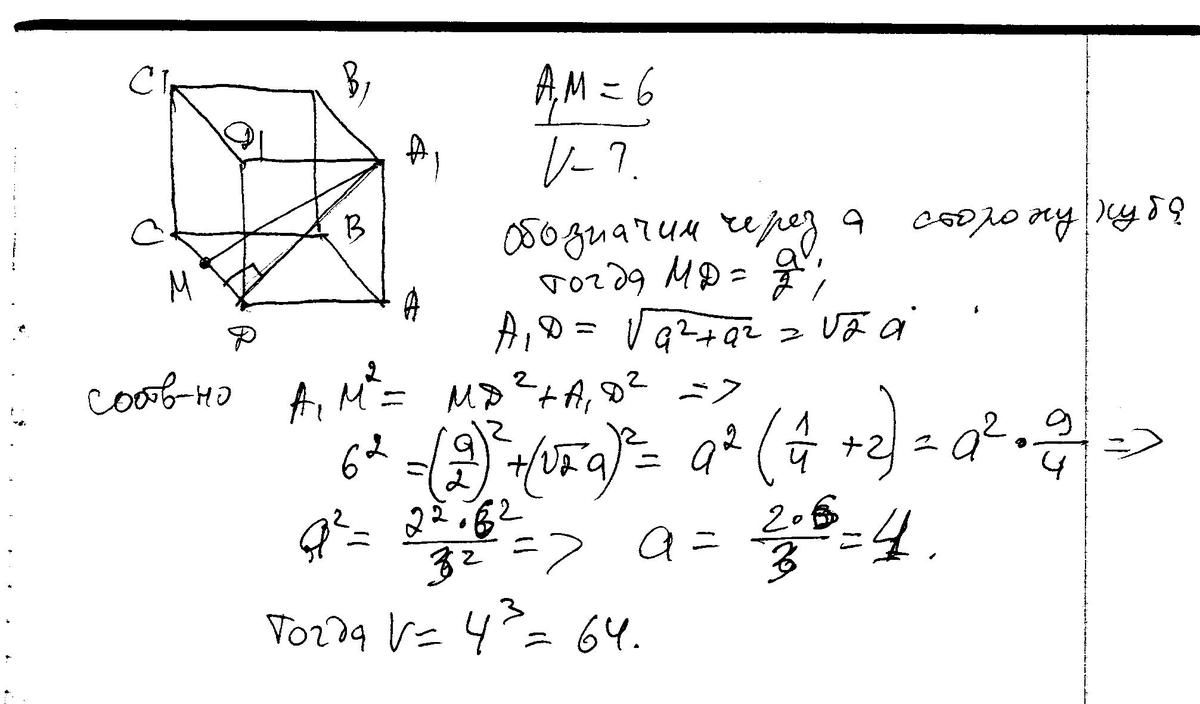 C1 B₁ A₁M = 6
D1 A₁ V – ?
C B обозначим через a сторону куба
M тогда MD = a/2;
D A A₁D = √(a²+a²) = √2 a
соотв-но A₁M² = MD² + A₁D² =>
6² = (a/2)² + (√2 a)² = a² (1/4 + 2) = a² · 9/4 =>
a² = 2² · 6² / 3² => a = 2 · 6 / 3 = 4.
Тогда V = 4³ = 64.